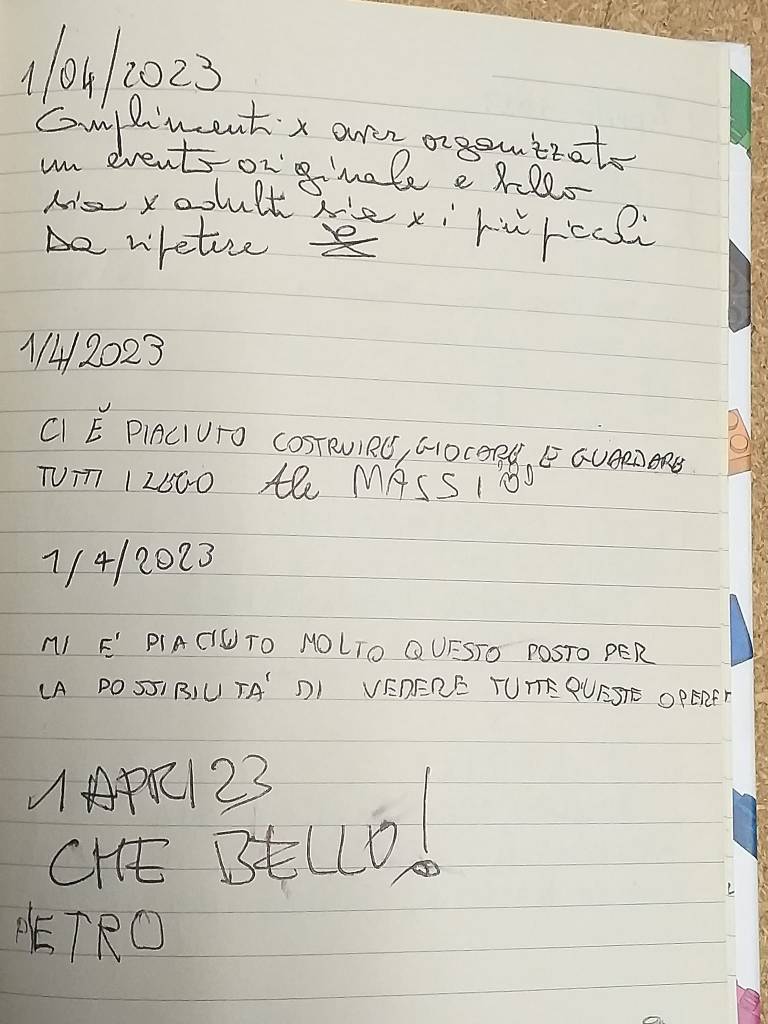 1/04/2023
Complimenti x aver organizzato
un evento originale e bello
sia x adulti sia x i più piccoli
Da ripetere
1/4/2023
CI È PIACIUTO COSTRUIRE, GIOCARE, E GUARDARE
TUTTI I LEGO Ale MASSI
1/4/2023
MI E' PIACIUTO MOLTO QUESTO POSTO PER
LA POSSIBILITA' DI VEDERE TUTTE QUESTE OPERE
1 APRI 23
CHE BELLO!
PIETRO